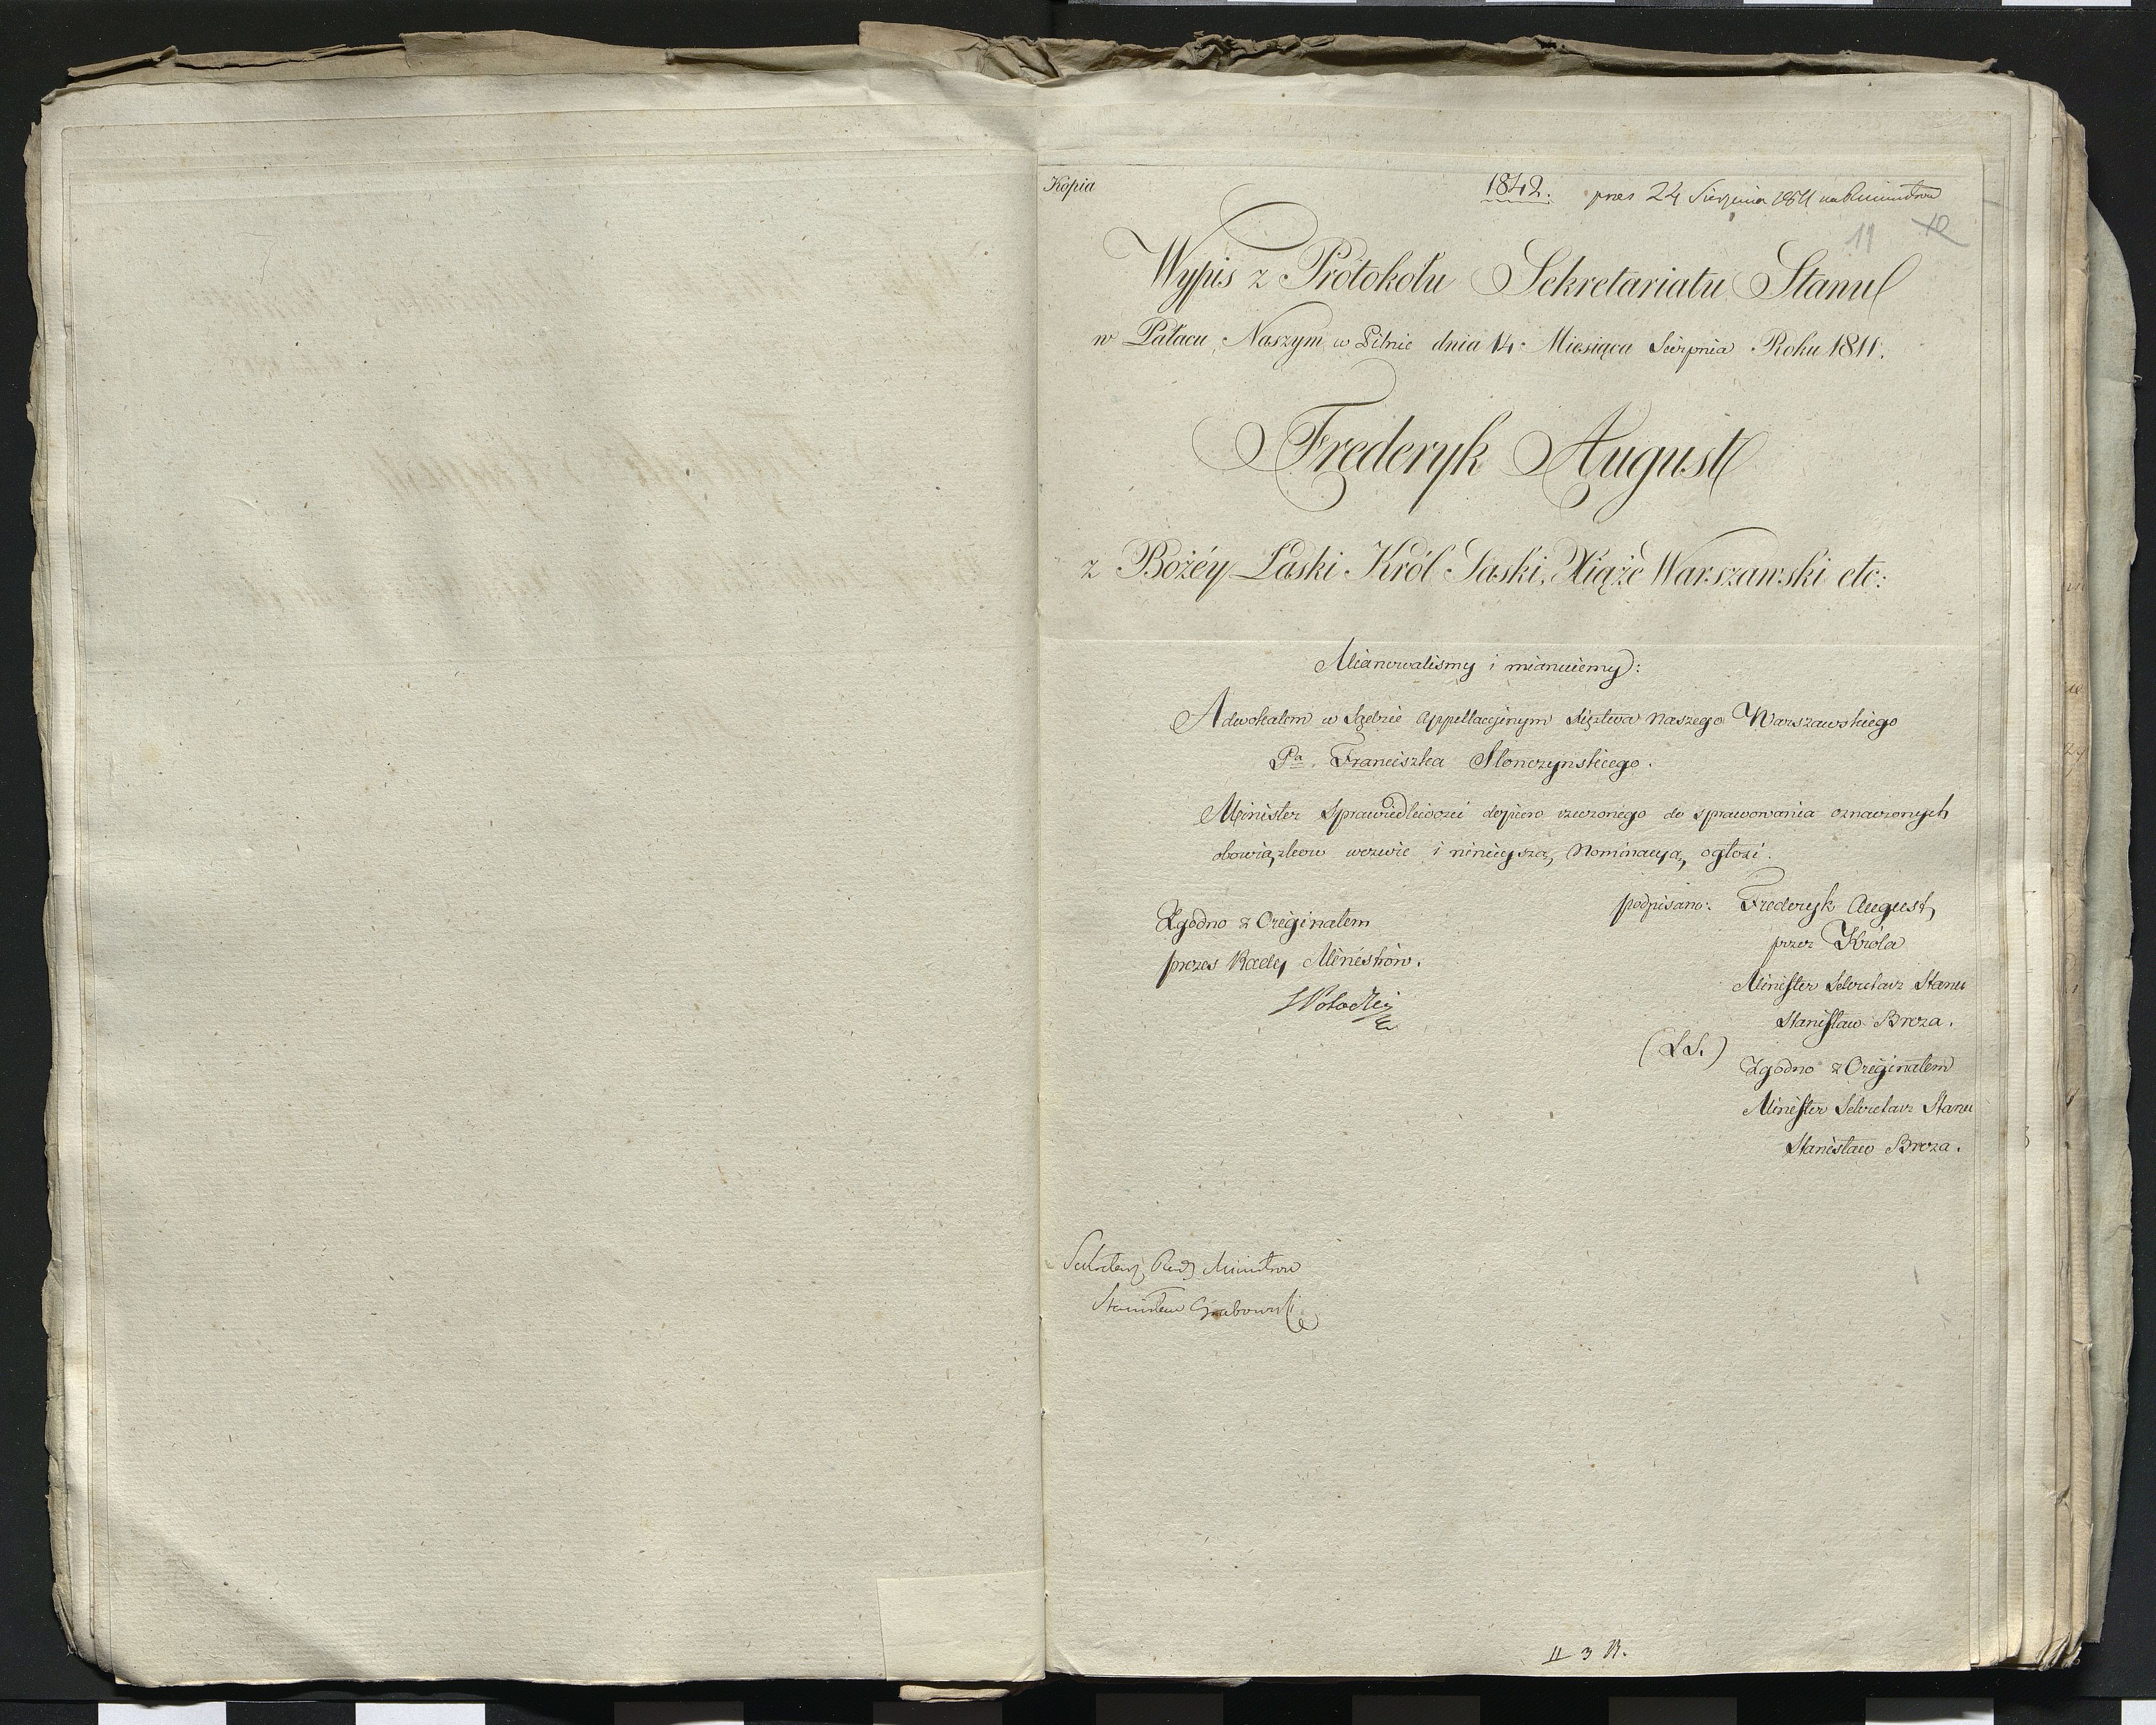 Kopia
1842. pres 24 Sierpnia 1811
11 12
Wypis z Protokołu Sekretariatu Stanu
w Pałacu Naszym w Pilnic dnia 14. Miesiąca Sierpnia Roku 1811.
Frederyk August
z Bożéy Łaski Król Saski, Xiąże Warszawski etc:
Mianowalismy i mianuiemy:
Adwokatem w Sądzie Appellacyinym Xięstwa Naszego Warszawskiego
Pa Franciszka Słonczynskiego.
Minister Sprawiedliwosci dopiero rzeczonego do sprawowania oznaczonych
obowiązkow wezwie i ninieyszą Nominacyą ogłosi.
podpisano: Frederyk August
przez Króla
Minister Sekretarz Stanu
Stanisław Breza.
(L.S.)
Zgodno z Originałem
Minister Sekretarz Stanu
Stanisław Breza.
Zgodno z Originałem
prezes Rady Ministrów.
Sekretarz Rady Ministrow
Stanisław Grabowski
II 3 R.